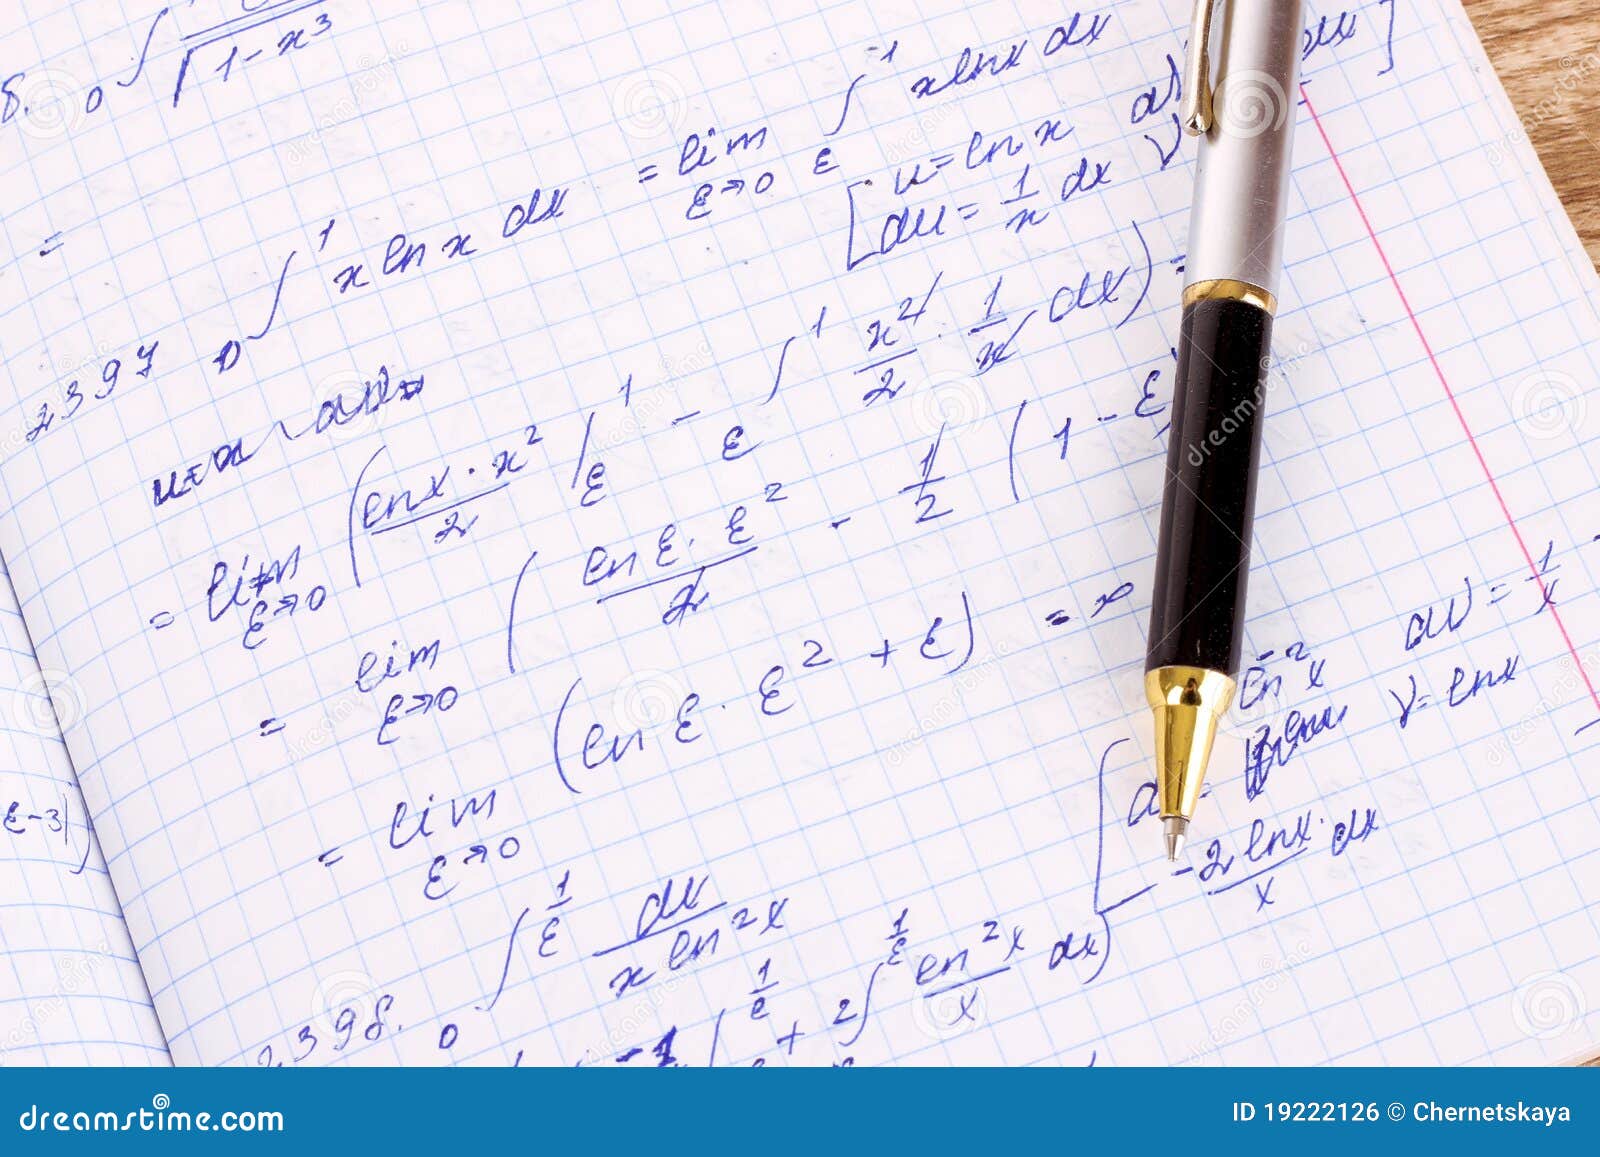 8. 0 ∫ √1-x³
=
2397 0 ∫ 1 x ln x dx = lim ε→0 ε ∫ 1 x ln x dx
[ u = ln x
du = 1/x dx v
= lim ε→0 ( ln x · x² / 2 | ε 1 - ε ∫ 1 x²/2 · 1/x dx ) =
= lim ε→0 ( ln ε · ε² / 2 - 1/2 ( 1 - ε
= lim ε→0 ( ln ε · ε² + ε ) = ∞
= lim ε→0
ε-3
ln⁻² x dv = 1/x
v = ln x
-2 ln x / x · dx
2398. 0 ∫ 1/ε dx / x ln² x
-1 | 1/ε + 2 ∫ 1/ε ln² x / x dx )
dreamstime.com
ID 19222126 © Chernetskaya